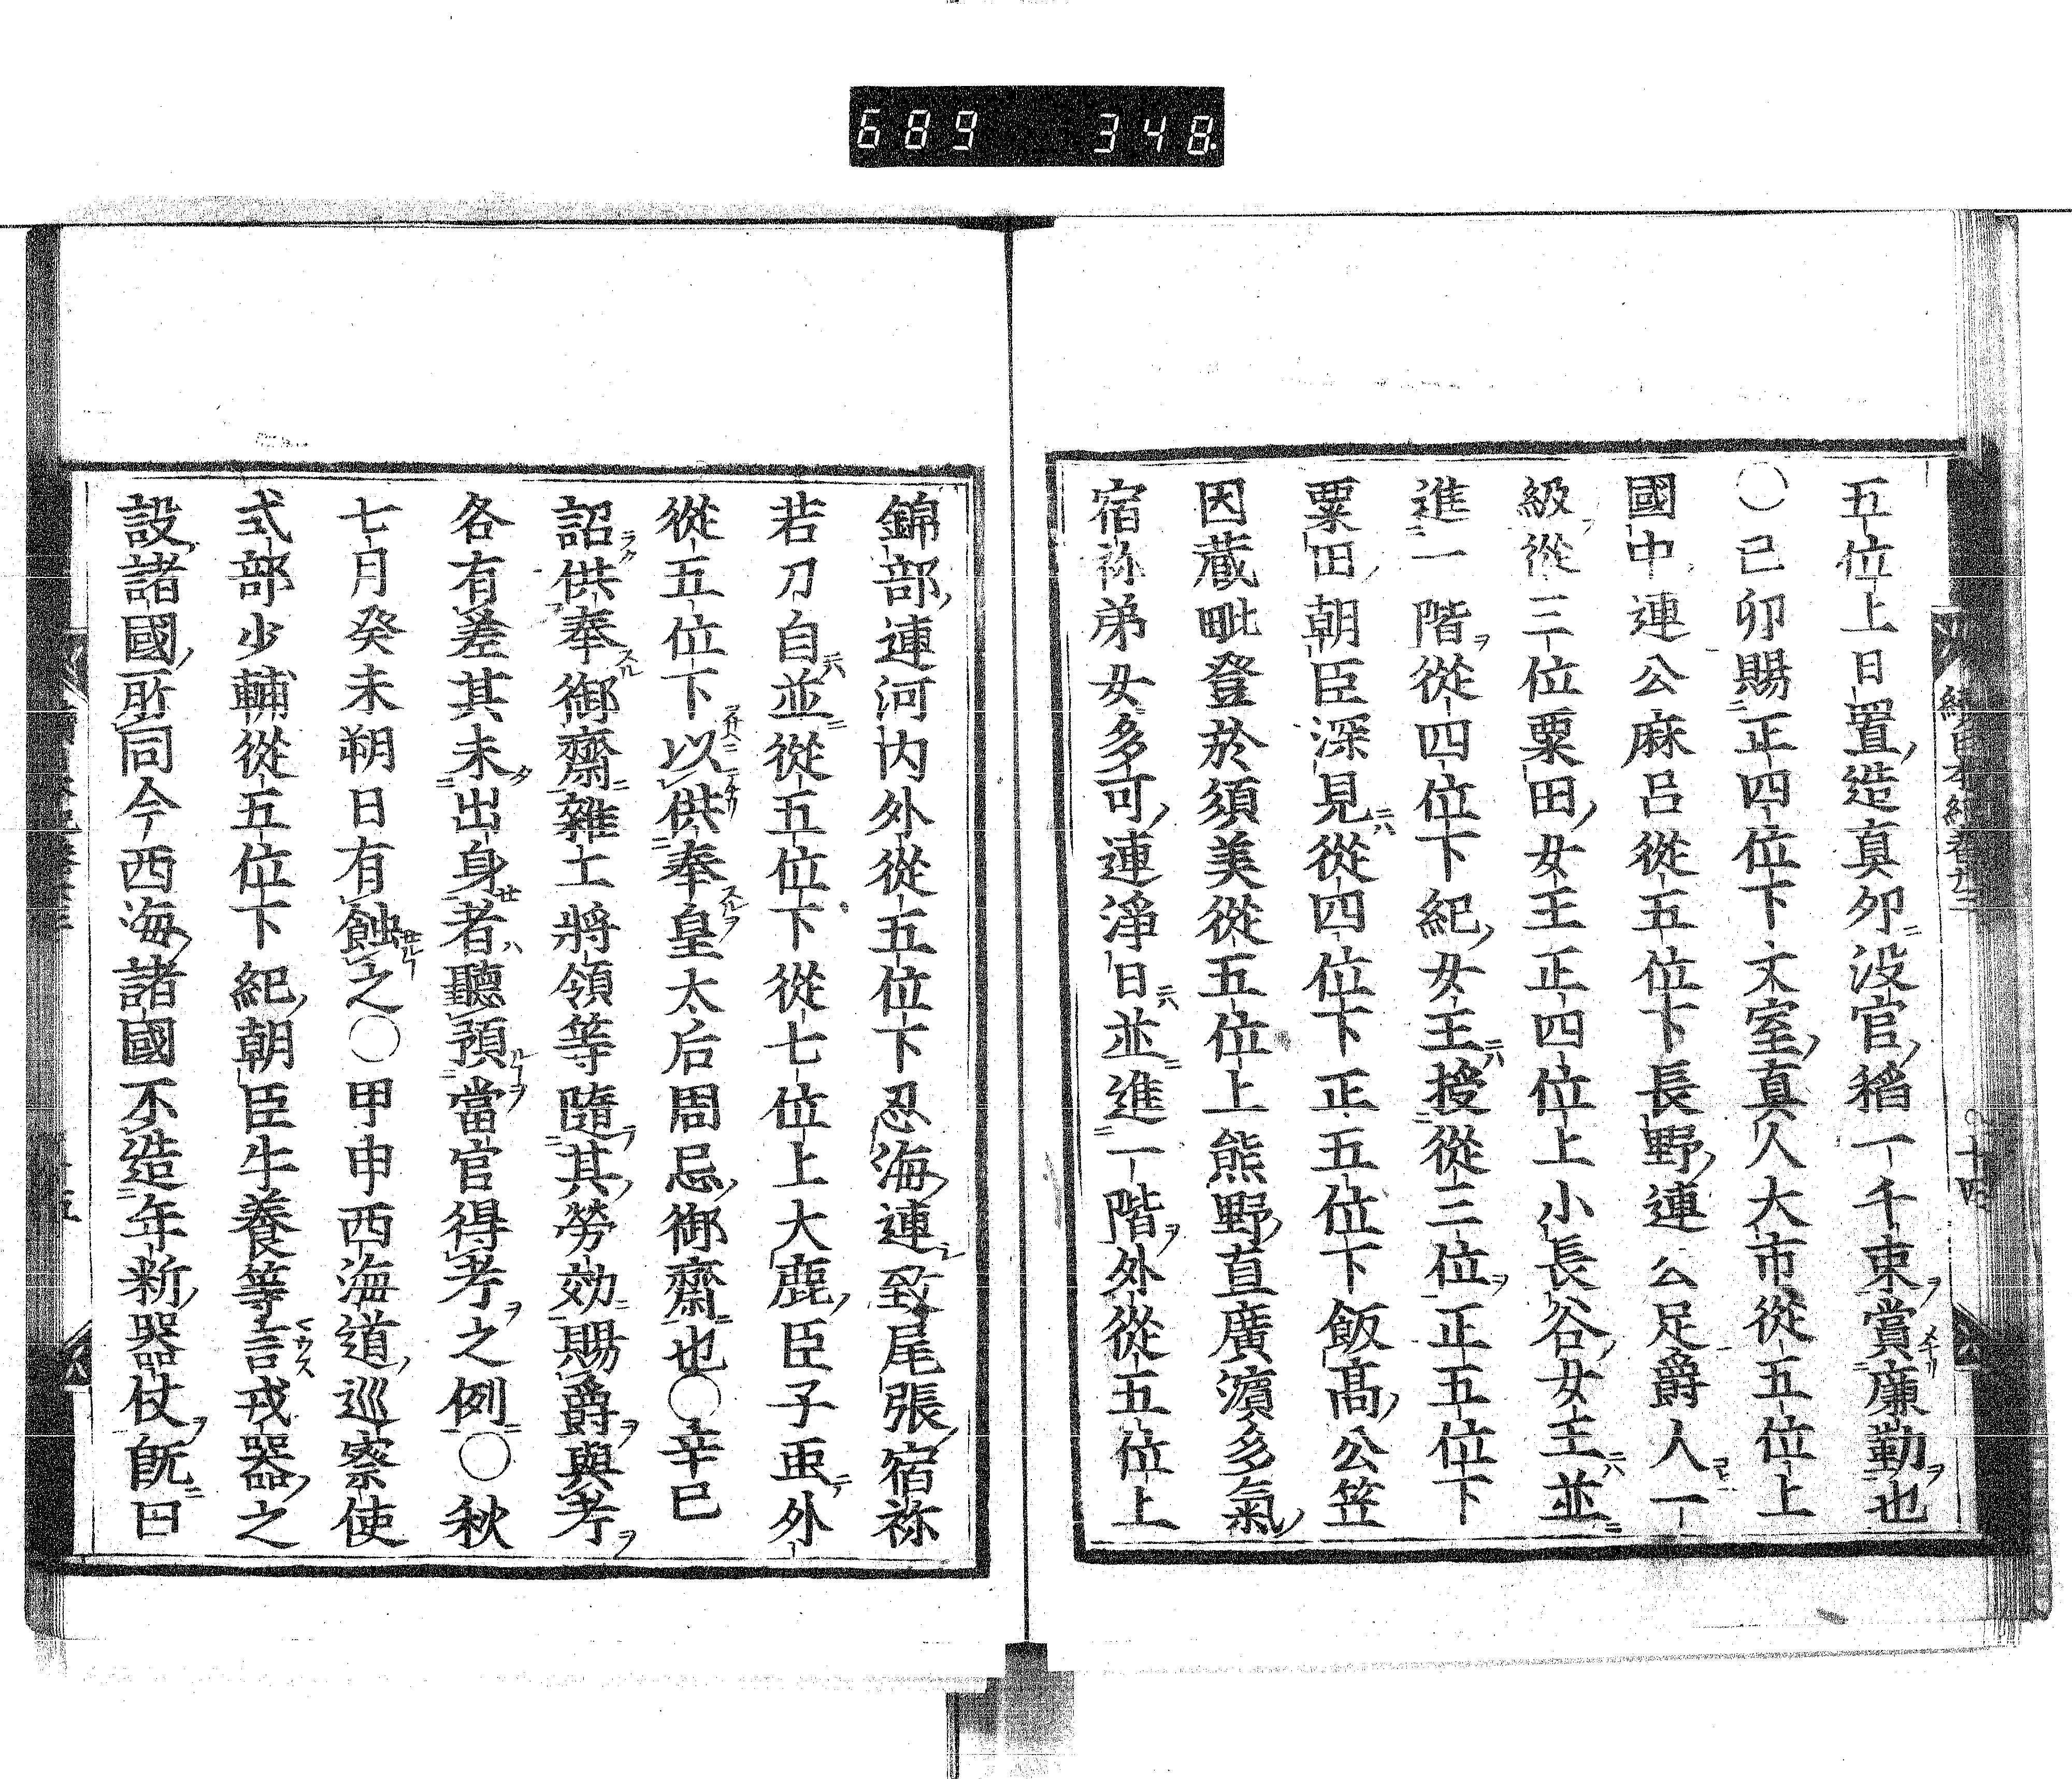 689 348
五位上日置造真卯没官稻一千束賞廉勤也
○己卯賜正四位下文室真人大市從五位上
國中連公麻呂從五位下長野連公足爵人一
級從三位粟田女王正四位上小長谷女王並
進一階從四位下紀女王授從三位正五位下
粟田朝臣深見從四位下正五位下飯高公笠
因蔵毗登於須美從五位上熊野直廣濱多氣
宿祢弟女多可連淨日並進一階外從五位上
錦部連河内外從五位下忍海連致尾張宿祢
若刀自並從五位下從七位上大鹿臣子虫外
從五位下以供奉皇太后周忌御齋也○辛巳
詔供奉御齋雜士將領等隨其勞効賜爵與考
各有差其未出身者聽預當官得考之例○秋
七月癸未朔日有蝕之○甲申西海道巡察使
式部少輔從五位下紀朝臣牛養等言戎器之
設諸國所同今西海諸國不造年新器仗既曰